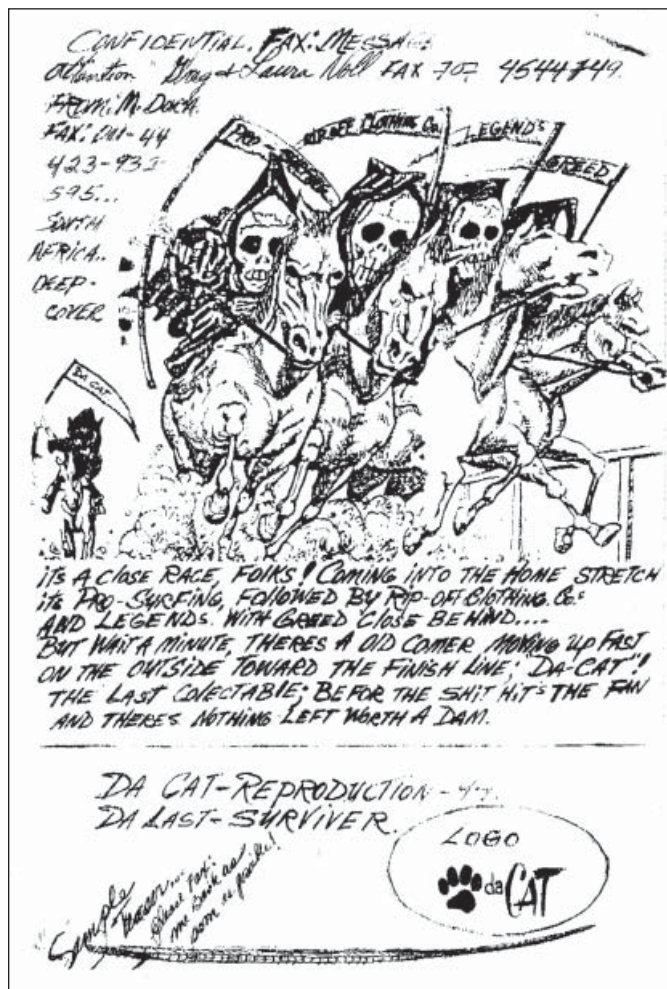 CONFIDENTIAL. FAX: MESSAGE
Attention Greg & Laura Noll FAX 707 4544749.
FROM: M. DORA
FAX: Out-44
423-932
595...
SOUTH
AFRICA..
DEEP-
COVER
PRO SURFING
RIPOFF CLOTHING Co.
LEGENDS
GREED
DA CAT
iTS A CLOSE RACE, FOLKS! COMING INTO THE HOME STRETCH
iTS PRO-SURFING, FOLLOWED BY RIP-OFF CLOTHING. Co.s
AND LEGENDS. WITH GREED CLOSE BEHIND....
BUT WAIT A MINUTE, THERES A OLD COMER MOVING UP FAST
ON THE OUTSIDE TOWARD THE FINISH LINE; "DA-CAT"!
THE LAST COLECTABLE; BEFOR THE SHIT HITS THE FAN
AND THERES NOTHING LEFT WORTH A DAM.
DA CAT-REPRODUCTION-44.
DA LAST-SURVIVER.
Sample
Please Fax:
me Back as
soon as posible!
LOGO
da CAT